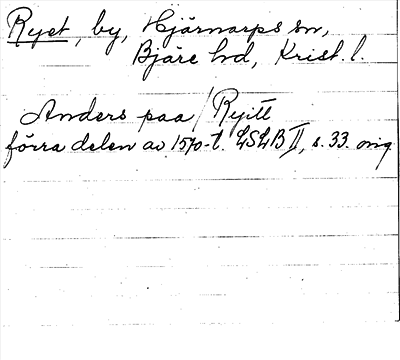 Ryet, by, Hjärnarps sn,
Bjäre hd, Krist. l.
Anders paa / Ryitt
förra delen av 1570-t. LSLB II, s. 33. orig